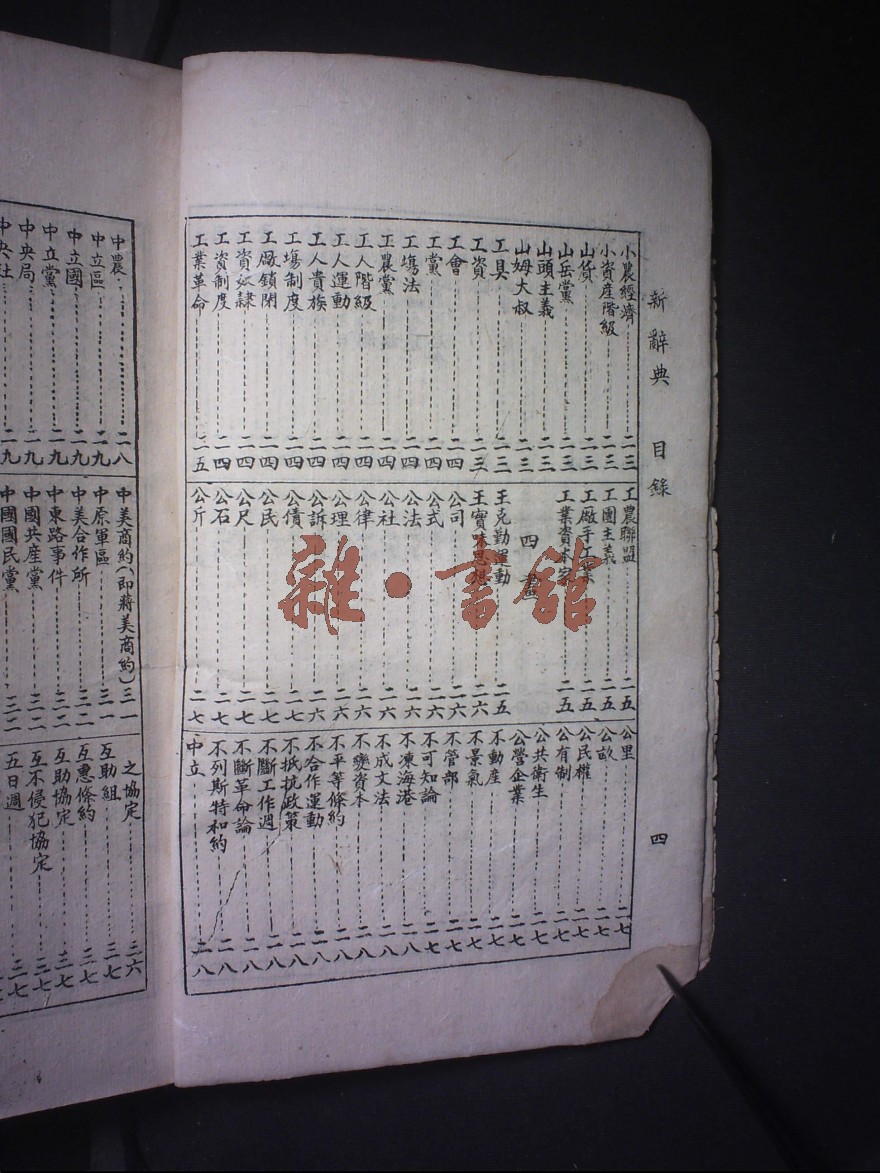 新辭典 目錄
四
小農經濟 二三
小資産階級 二三
山貨 二三
山岳黨 二三
山頭主義 二三
山姆大叔 二三
工具 二三
工資 二三
工會 二四
工黨 二四
工塲法 二四
工農黨 二四
工人階級 二四
工人運動 二四
工人貴族 二四
工塲制度 二四
工廠鎖閉 二四
工資奴隷 二四
工資制度 二四
工業革命 二五
工農聯盟 二五
工團主義 二五
工廠手工業 二五
工業資本家 二五
四畫
王克勤運動 二五
王實味思想 二六
公司 二六
公式 二六
公法 二六
公社 二六
公律 二六
公理 二六
公訴 二六
公債 二七
公民 二七
公尺 二七
公石 二七
公斤 二七
公里 二七
公畝 二七
公民權 二七
公有制 二七
公共衛生 二七
公營企業 二七
不動産 二七
不景氣 二七
不管部 二七
不可知論 二七
不凍海港 二八
不成文法 二八
不變資本 二八
不平等條約 二八
不合作運動 二八
不抵抗政策 二八
不斷工作週 二八
不斷革命論 二八
不列斯特和約 二八
中立 二八
中農 二八
中立區 二九
中立國 二九
中立黨 二九
中央局 二九
中央社 二九
中美商約(即蔣美商約) 三一
中原軍區 三一
中美合作所 三二
中東路事件 三二
中國共産黨 三二
中國國民黨 三三
之協定 三六
互助組 三七
互惠條約 三七
互助協定 三七
互不侵犯協定 三七
五日週 三七
雜·書館